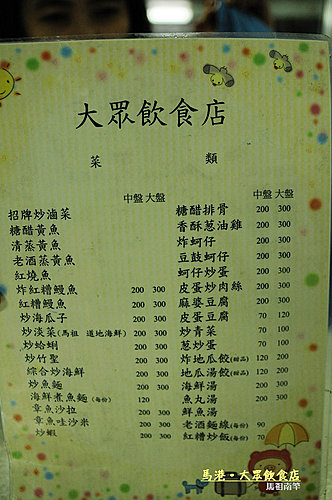 大眾飲食店
菜 類
中盤 大盤
招牌炒滷菜
糖醋黃魚
清蒸黃魚
老酒蒸黃魚
紅燒魚
炸紅糟鰻魚 200 300
紅糟鰻魚 200 300
炒海瓜子 200 300
炒淡菜(馬祖 道地海鮮) 200 300
炒蛤蜊 200 300
炒竹聖 200 300
綜合炒海鮮 200 300
炒魚麵 200 300
海鮮煮魚麵(每份) 120
章魚沙拉 200 300
章魚哇沙米 200 300
炒蝦 200 300
中盤 大盤
糖醋排骨 200 300
香酥蔥油雞 200 300
炸蚵仔 200 300
豆鼓蚵仔 200 300
蚵仔炒蛋 200 300
皮蛋炒肉絲 200 300
麻婆豆腐 200 300
皮蛋豆腐 70 120
炒青菜 70 100
蔥炒蛋 70 100
炸地瓜餃(甜品) 120 200
地瓜湯餃(甜品) 120 200
海鮮湯 200 300
魚丸湯 200 300
鮮魚湯 200 300
老酒麵線(每份) 90
紅糟炒飯(每份) 70
馬港‧大眾飲食店
馬祖南竿